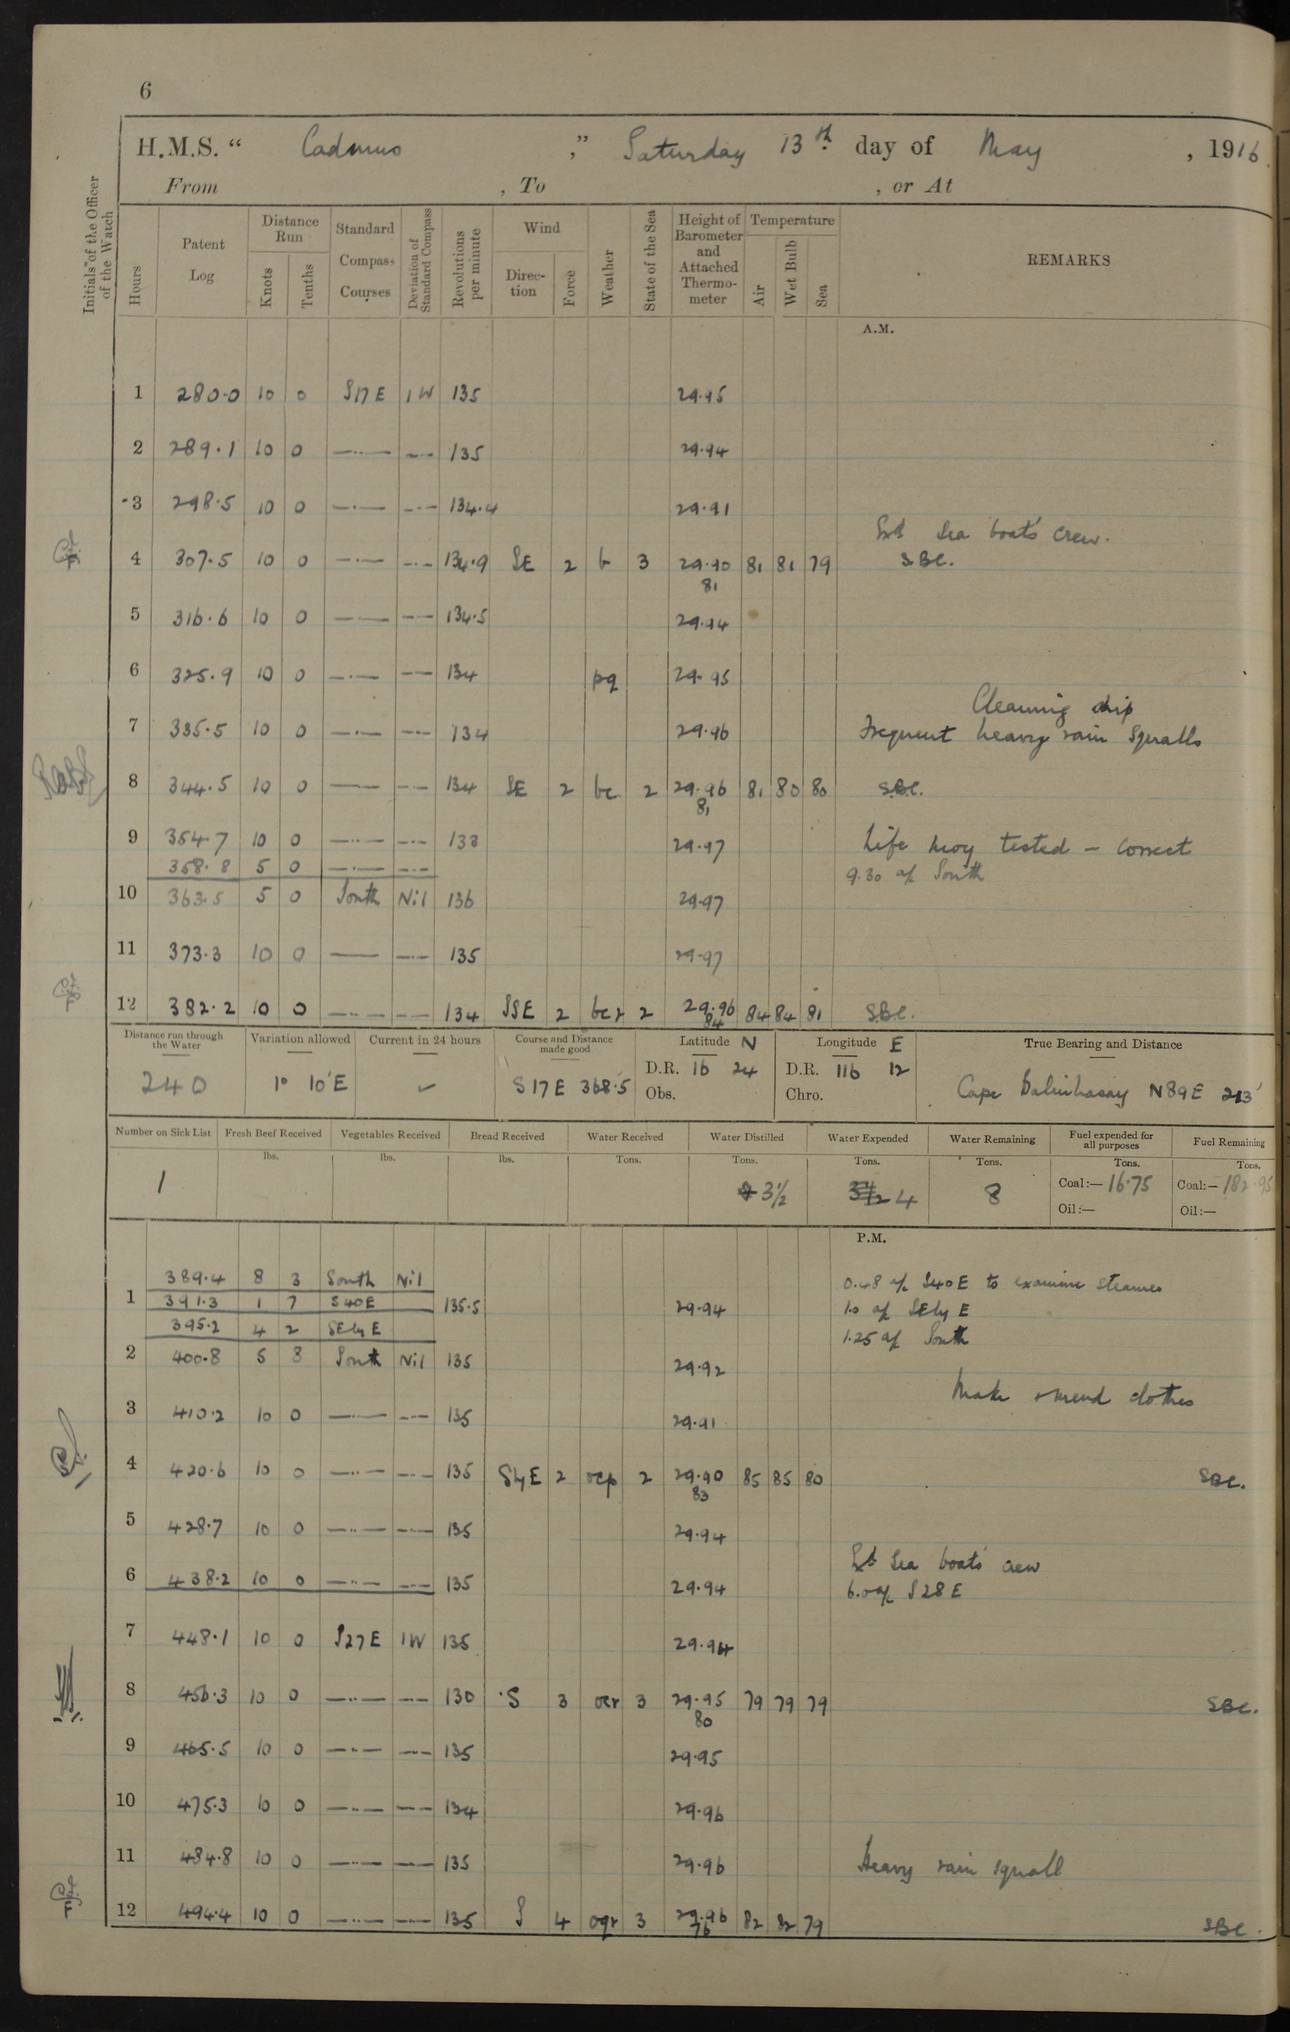 6
H.M.S. “ Cadmus ,” Saturday 13th day of May , 1916.
From , To , or At
Initials of the Officer of the Watch
Hours
Patent Log
Distance Run
Knots
Tenths
Standard Compass Courses
Deviation of Standard Compass
Revolutions per minute
Wind
Direction
Force
Weather
State of the Sea
Height of Barometer and Attached Thermometer
Temperature
Air
Wet Bulb
Sea
REMARKS
A.M.
1 280.0 10 0 S17E 1W 135 29.95
2 289.1 10 0 —..— —..— 135 29.94
3 298.5 10 0 —..— —..— 134.4 29.91
Ext Sea boat's crew.
4 307.5 10 0 —..— —..— 134.9 SE 2 b 3 29.90 81 81 79 SBC.
81
5 316.6 10 0 — — — — 134.5 29.94
6 325.9 10 0 —.— — — 134 pq 29.95
Cleaning ship
7 335.5 10 0 —.— —..— 134 29.96 Frequent heavy rain Squalls
8 344.5 10 0 — — — — 134 SE 2 bc 2 29.96 81 80 80 SBC.
81
9 354.7 10 0 —..— —..— 133 29.97 Life buoy tested – correct
358.8 5 0 —..— —..— 9.30 a/c South
10 363.5 5 0 South Nil 136 29.97
11 373.3 10 0 — — —..— 135 29.97
12 382.2 10 0 —..— —..— 134 SSE 2 bcr 2 29.96 84 84 81 SBC.
84
Distance run through the Water
240
Variation allowed
1° 10'E
Current in 24 hours
✓
Course and Distance made good
S17E 368.5
Latitude N
D.R. 16 24
Obs.
Longitude E
D.R. 116 12
Chro.
True Bearing and Distance
Cape N89E 213'
Number on Sick List
1
Fresh Beef Received
lbs.
Vegetables Received
lbs.
Bread Received
lbs.
Water Received
Tons.
Water Distilled
Tons.
3½
Water Expended
Tons.
4
Water Remaining
Tons.
8
Fuel expended for all purposes
Tons.
Coal:— 16.75
Oil:—
Fuel Remaining
Tons.
Coal:— 182.95
Oil:—
P.M.
389.4 8 3 South Nil 0.48 a/c S40E to examine steamer
1 391.3 1 7 S40E 135.5 29.94 1.0 a/c SEbyE
395.2 4 2 SEbyE 1.25 a/c South
2 400.8 5 8 South Nil 135 29.92
Make & mend clothes
3 410.2 10 0 —..— —..— 135 29.91
4 420.6 10 0 —..— —..— 135 SbyE 2 ocp 2 29.90 85 85 80 SBC.
83
5 428.7 10 0 —..— —..— 135 29.94
Ext Sea boats crew
6 438.2 10 0 —..— —..— 135 29.94 6.0 a/c S28E
7 448.1 10 0 S27E 1W 135 29.94
8 456.3 10 0 —..— —..— 130 S 3 ocr 3 29.95 79 79 79 SBC.
80
9 465.5 10 0 —..— —..— 135 29.95
10 475.3 10 0 —..— — — 134 29.96
11 484.8 10 0 —..— —..— 135 29.96 Heavy rain squall
12 494.4 10 0 —..— —..— 135 S 4 oqr 3 29.96 82 82 79 SBC.
76